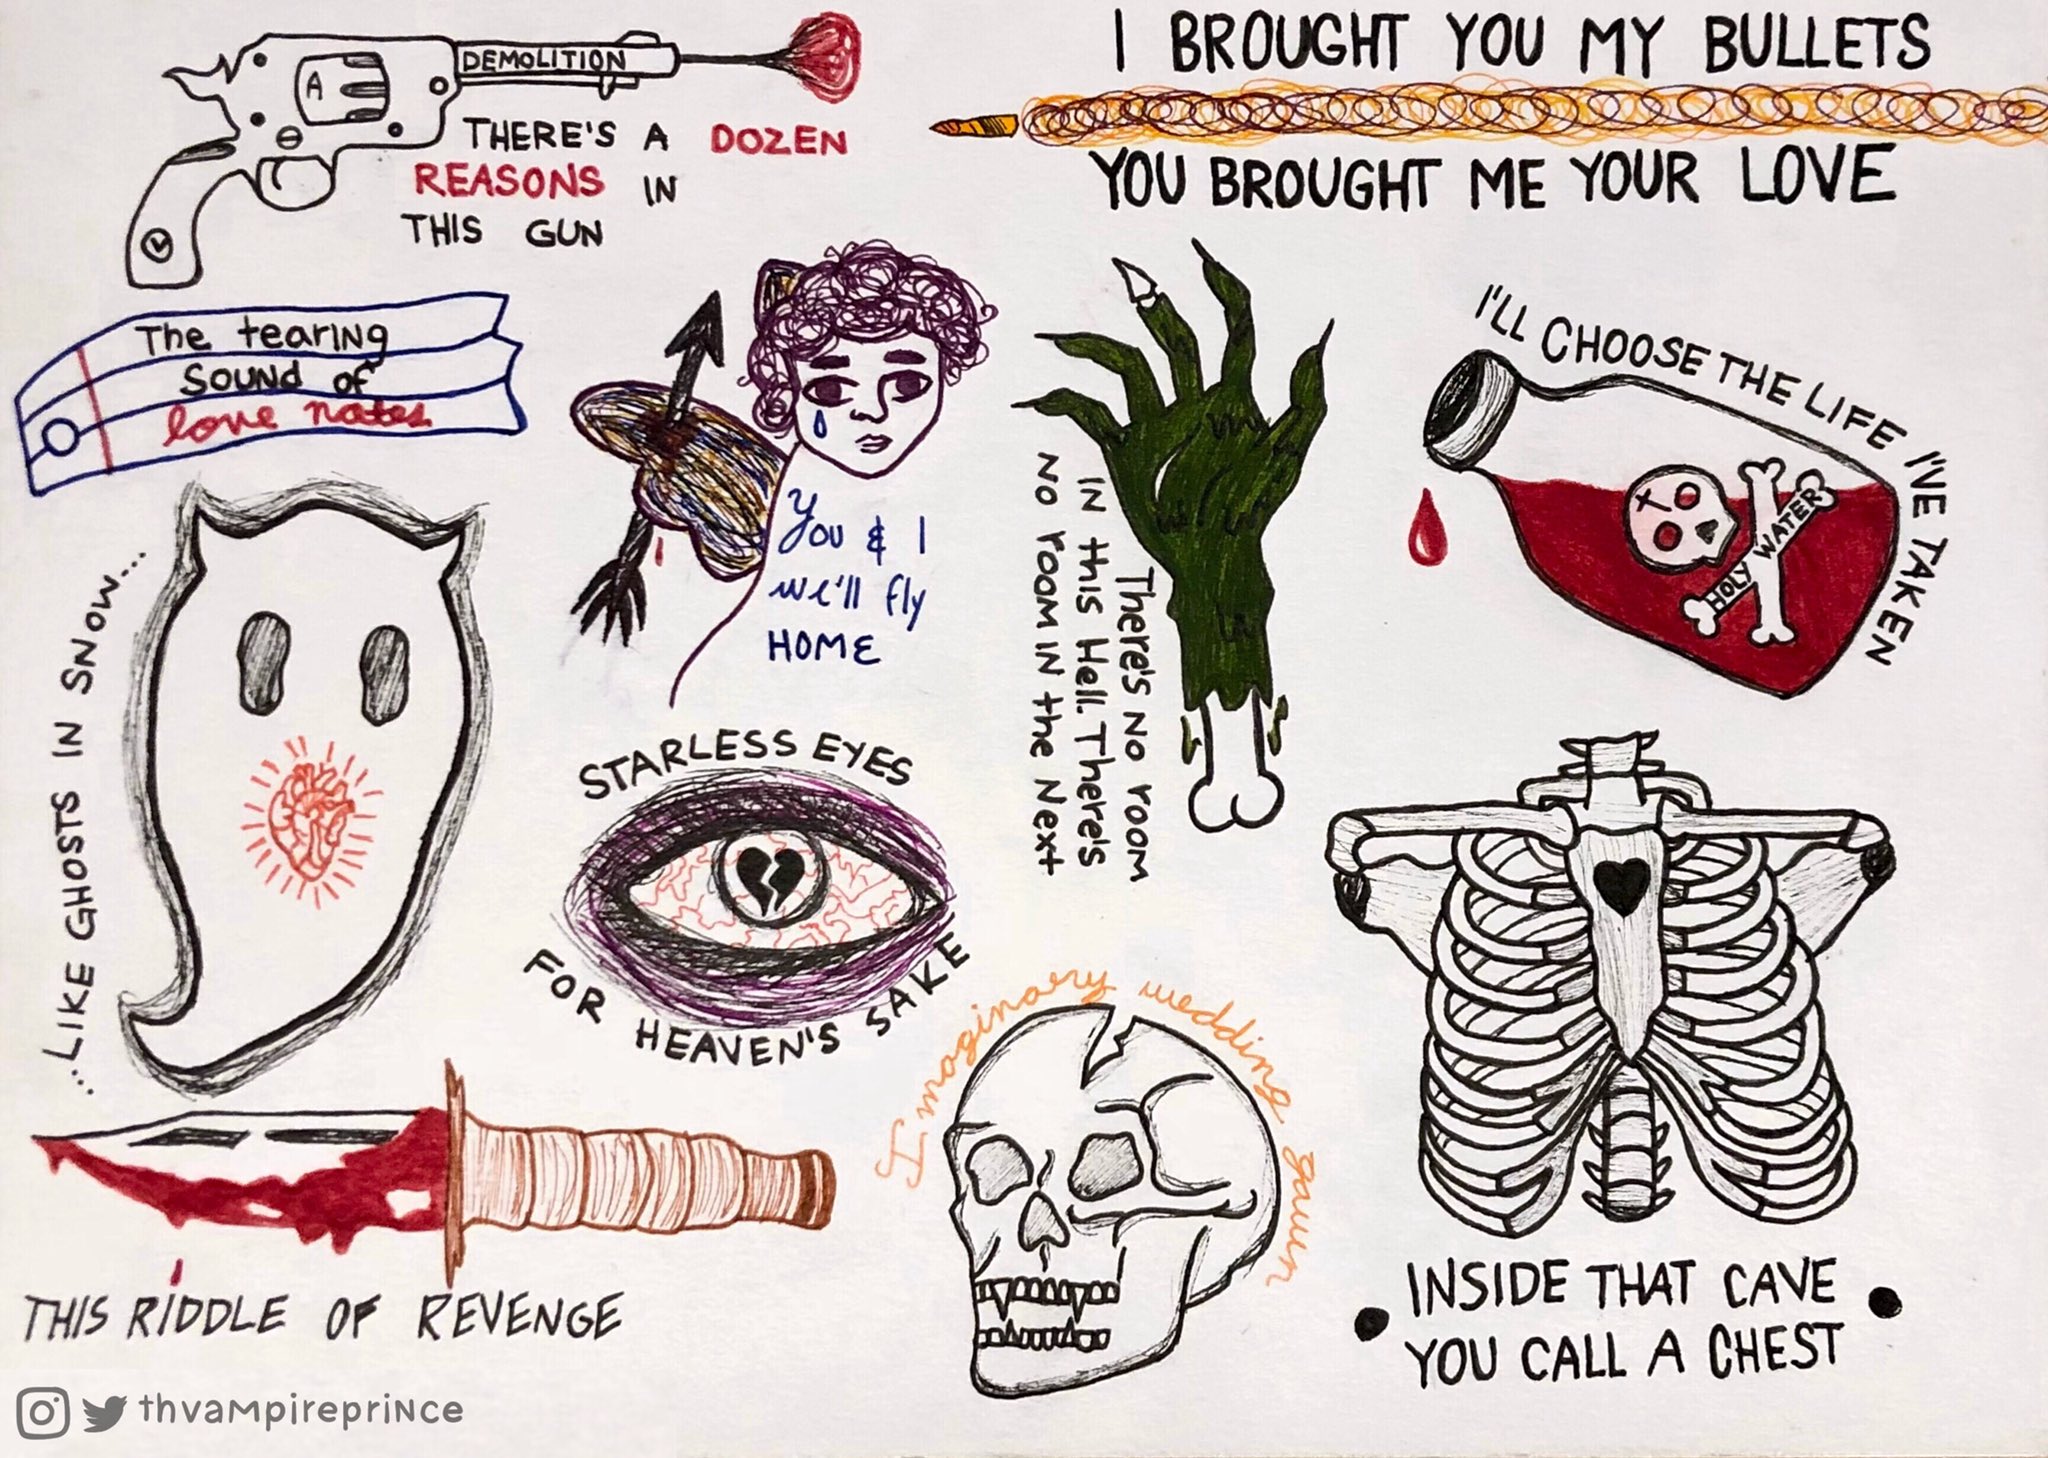 A
DEMOLITION
THERE'S A DOZEN
REASONS IN
THIS GUN
I BROUGHT YOU MY BULLETS
YOU BROUGHT ME YOUR LOVE
The tearing
sound of
love notes
You & I
we'll fly
HOME
There's no room
in this Hell. There's
no room in the next
I'LL CHOOSE THE LIFE I'VE TAKEN
HOLY WATER
...LIKE GHOSTS IN SNOW...
STARLESS EYES
FOR HEAVEN'S SAKE
Imaginary wedding gown
THIS RIDDLE OF REVENGE
INSIDE THAT CAVE
YOU CALL A CHEST
thvampireprince